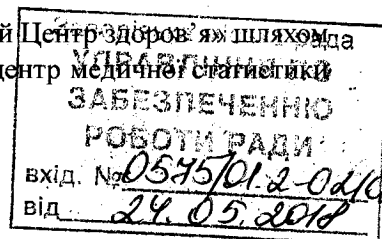 й Центр здоров’я» шляхом
рада
центр медичної статистики
УПРАВЛІННЯ ПО
ЗАБЕЗПЕЧЕННЮ
РОБОТИ РАДИ
вхід. № 0575/01.2-02/0
від 24.05.2018